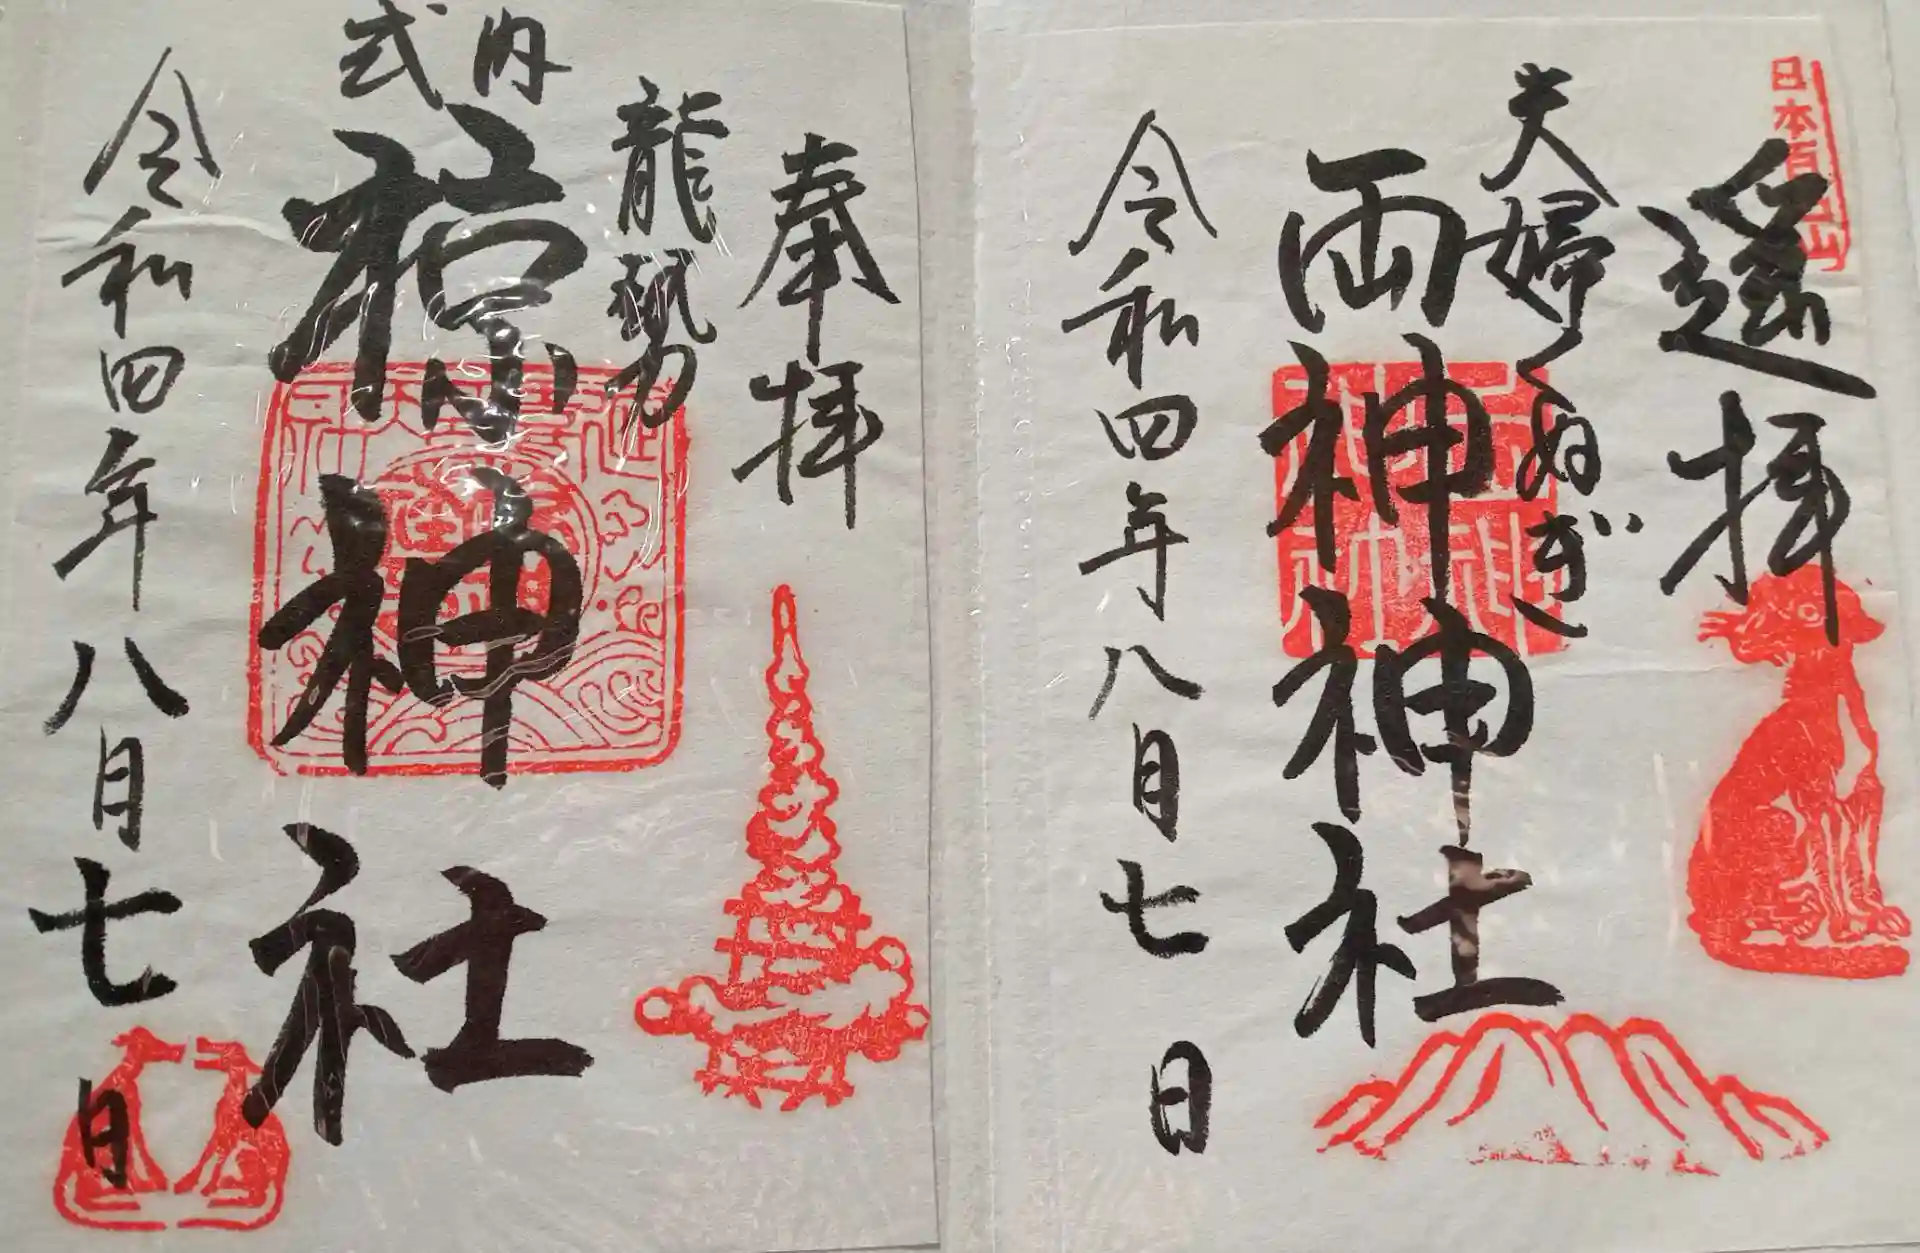 日本百名山
遙拝
夫婦くぬぎ
両神神社
令和四年八月七日
奉拝
龍勢
式内
椋神社
令和四年八月七日